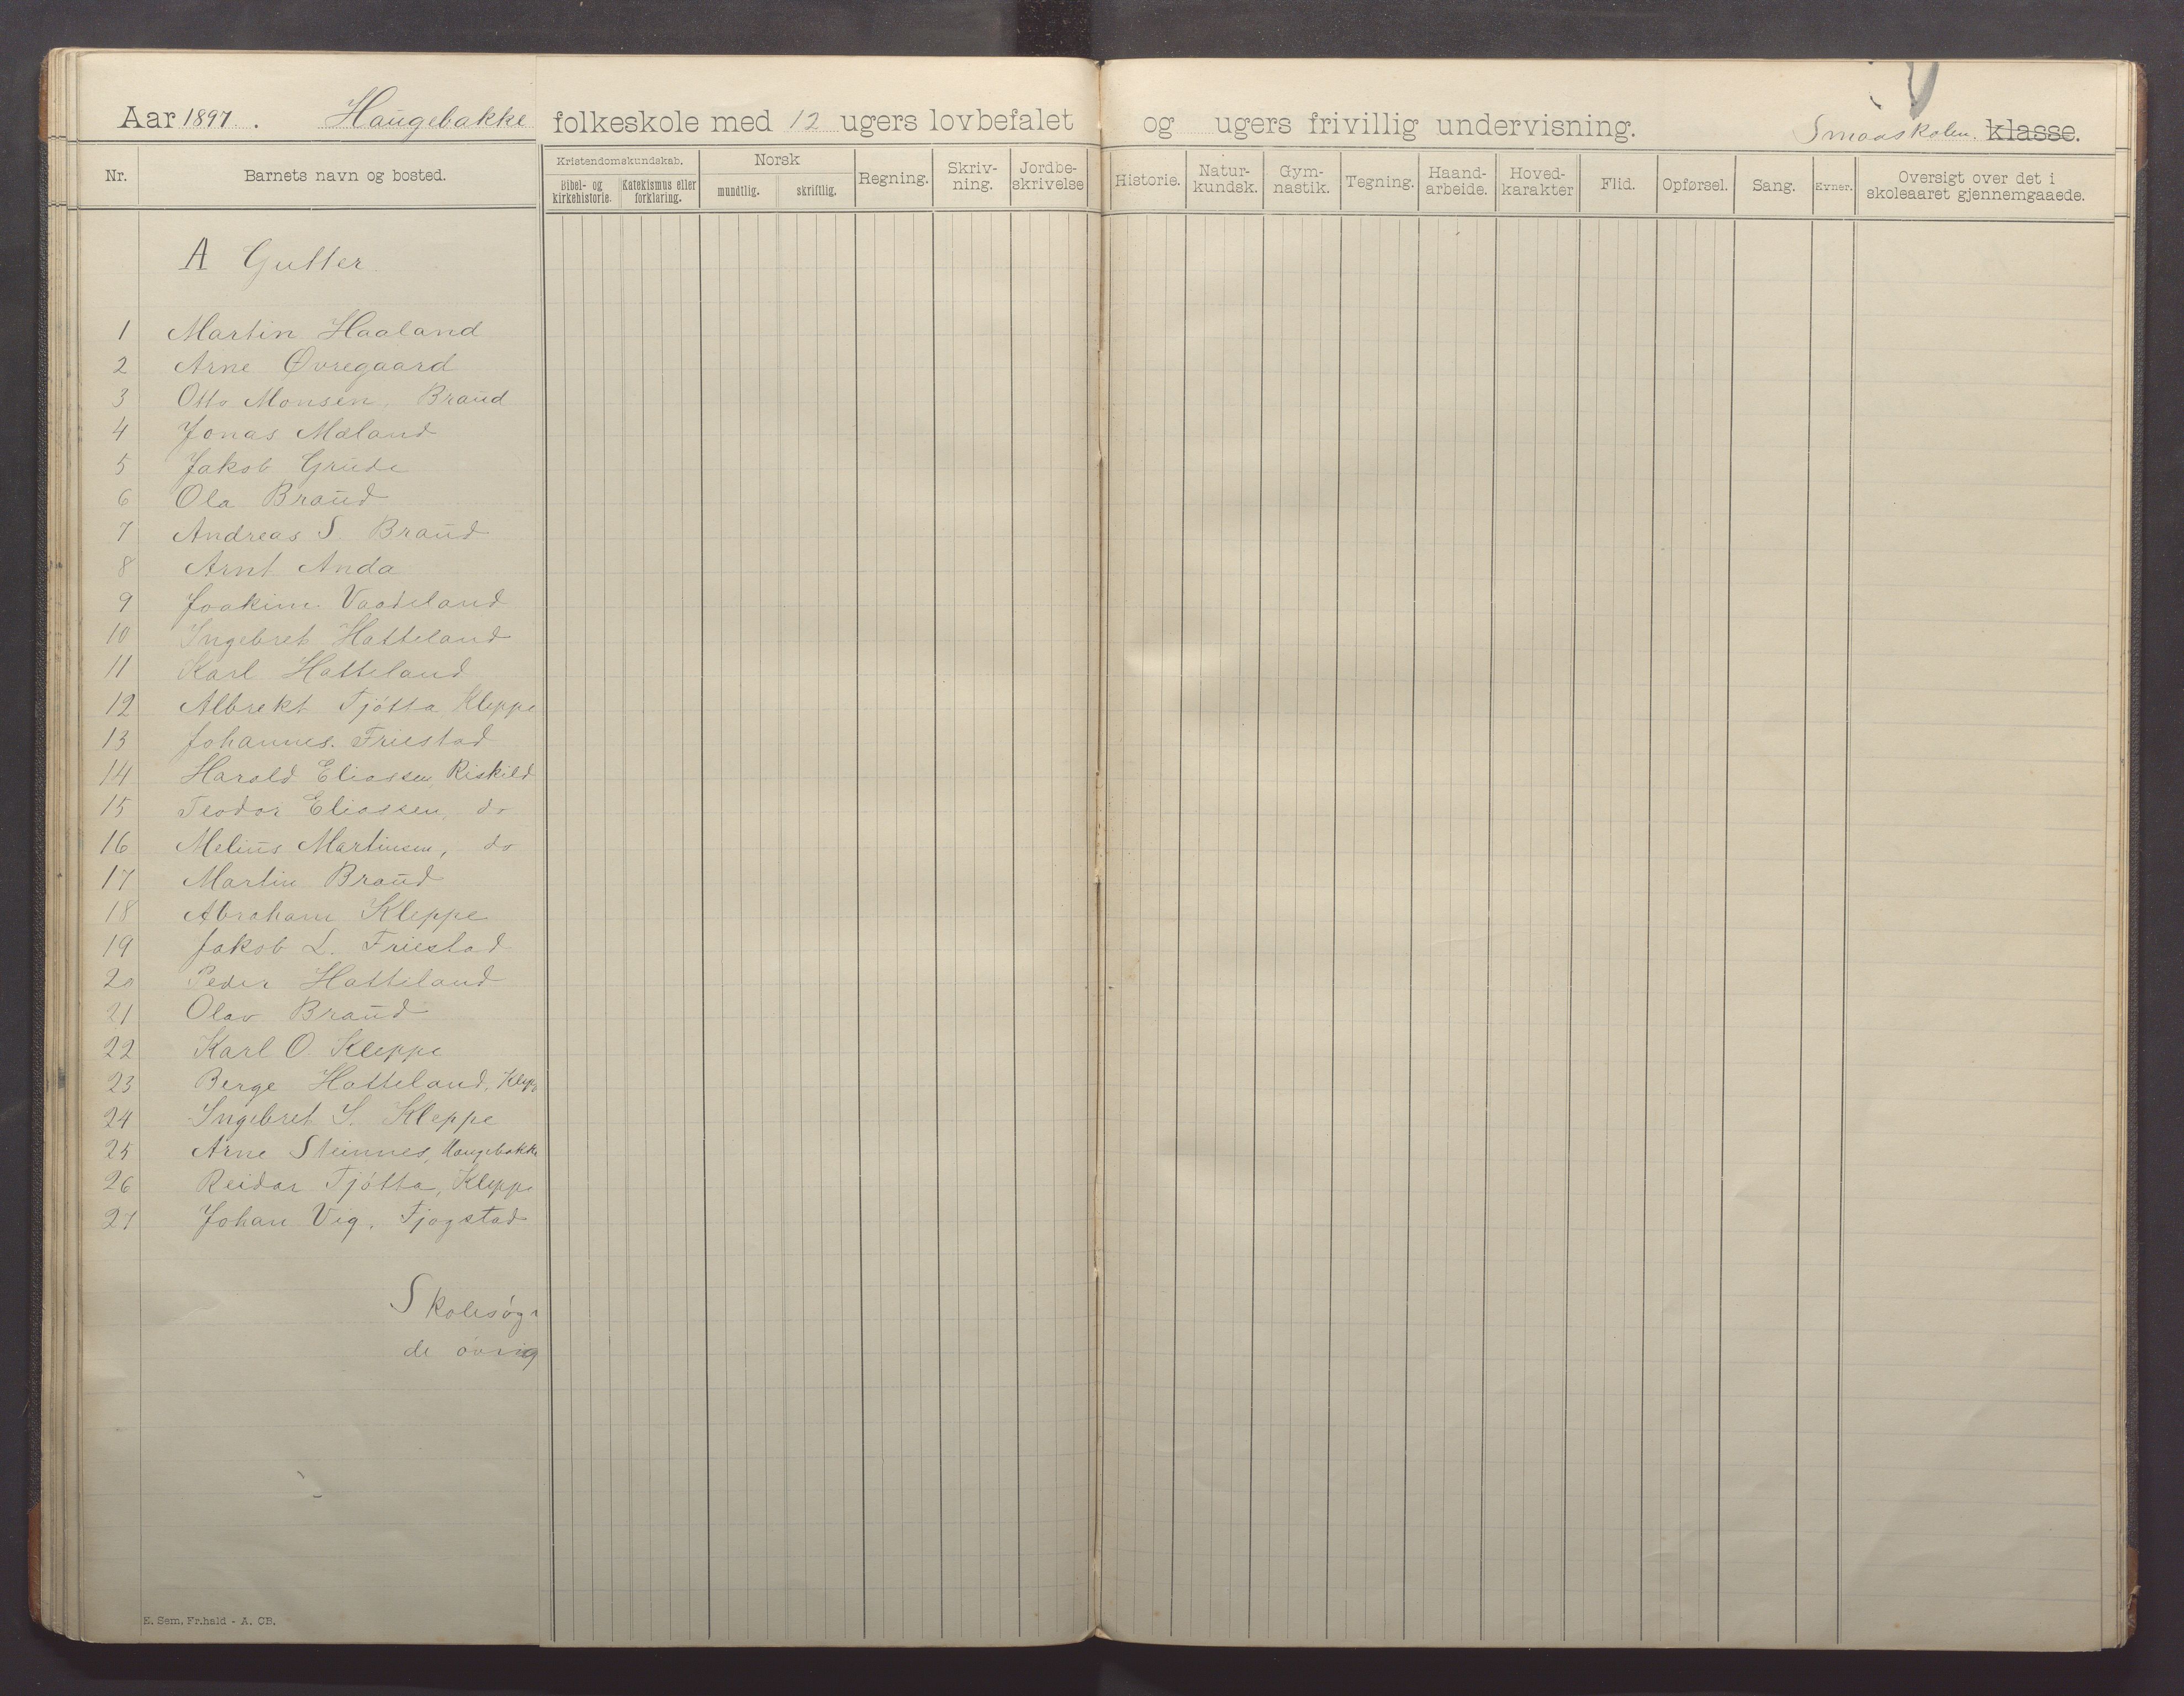 Aar 1897. Haugebakke folkeskole med 12 ugers lovbefalet og ugers frivillig undervisning. Smaaskolen. klasse.
Nr. Barnets navn og bosted. Kristendomskundskab. Bibel- og kirkehistorie. Katekismus eller forklaring. Norsk mundtlig. skriftlig. Regning. Skriv-ning. Jordbe-skrivelse Historie. Natur-kundsk. Gym-nastik. Tegning. Haand-arbeide. Hoved-karakter Flid. Opførsel. Sang. Evner. Oversigt over det i skoleaaret gjennemgaaede.
A Gutter
1 Martin Haaland
2 Arne Øvregaard
3 Otto Monsen, Braud
4 Jonas Mæland
5 Jakob Grude
6 Ola Braud
7 Andreas S. Braud
8 Arnt Anda
9 Joakim Vaadeland
10 Ingebret Hatteland
11 Karl Hatteland
12 Albrekt Tjótta Kleppe
13 Johannes. Friestad
14 Harald Eliassen, Riskild
15 Teodor Eliassen, do
16 Melius Martinsen, do
17 Martin Braud
18 Abraham Kleppe
19 Jakob L. Friestad
20 Peder Hatteland
21 Olav Braud
22 Karl O. Kleppe
23 Berge Hatteland, Klepp
24 Ingebret S. Kleppe
25 Arne Steinnes, Haugebakke
26 Reidar Tjótta, Kleppe
27 Johan Vig. Tjogstad
Skolesøg
de óvrig
E. Sem, Fr.hald - A. CB.